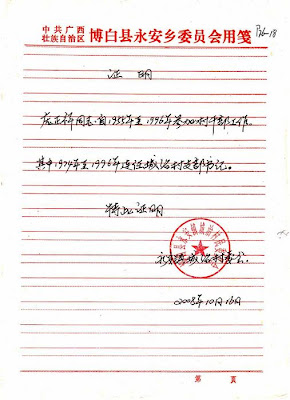 中共广西
壮族自治区 博白县永安乡委员会用笺
证明
庞正祥同志,自1955年至1996年参加村干部工作,
其中1974年至1996年连任城治村支部书记。
特此证明
2008年10月16日
第 页